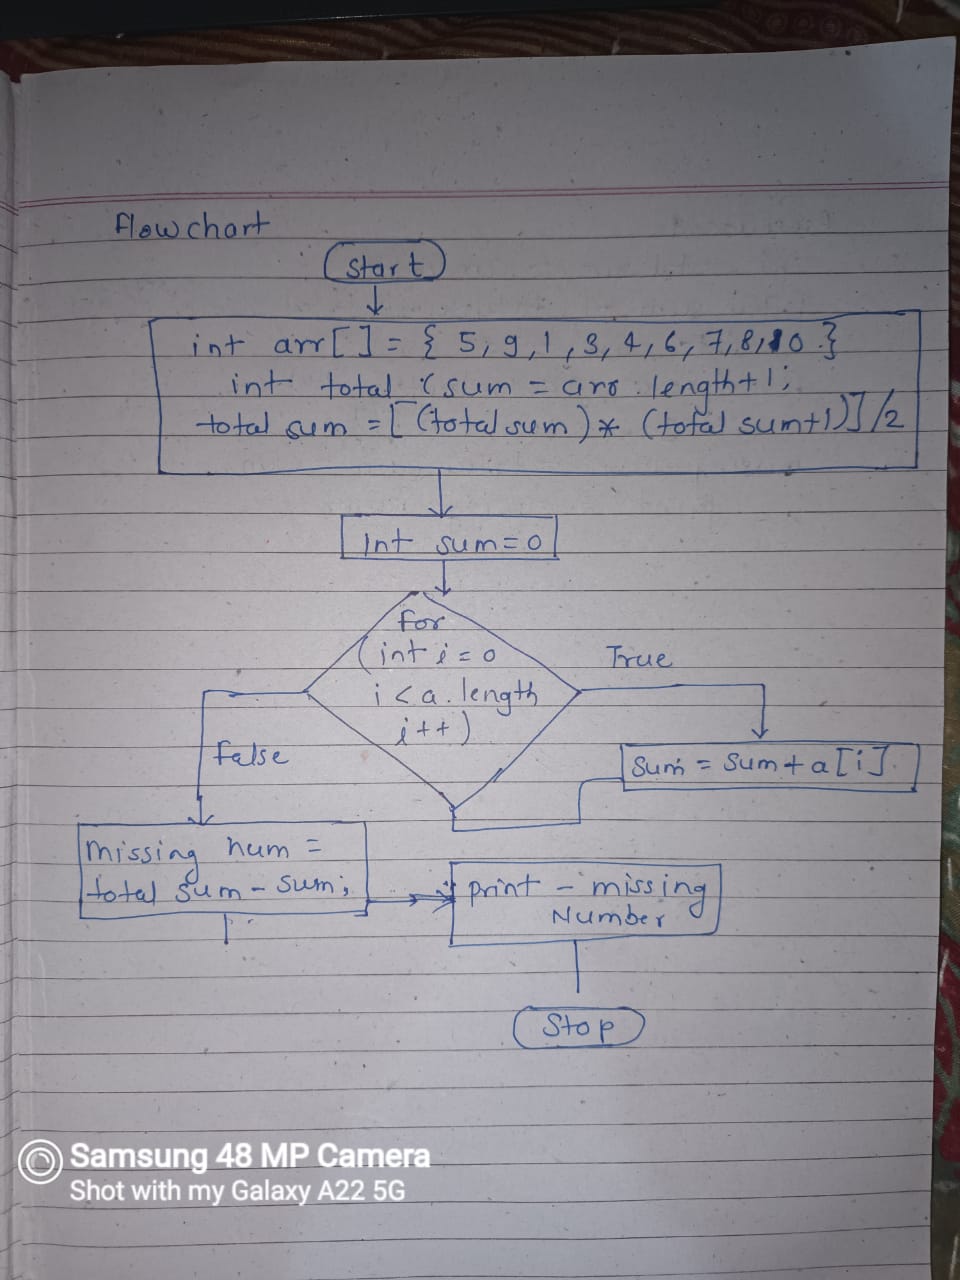 Flowchart
Start
int arr[] = { 5, 9, 1, 3, 4, 6, 7, 8, 10 }
int total sum = arr.length+1;
total sum = [(total sum) * (total sum+1)]/2
int sum=0
for
(int i = 0
i < a.length
i++)
True
False
Sum = Sum + a[i]
missing num =
total sum - sum;
print - missing
Number
Stop
Samsung 48 MP Camera
Shot with my Galaxy A22 5G